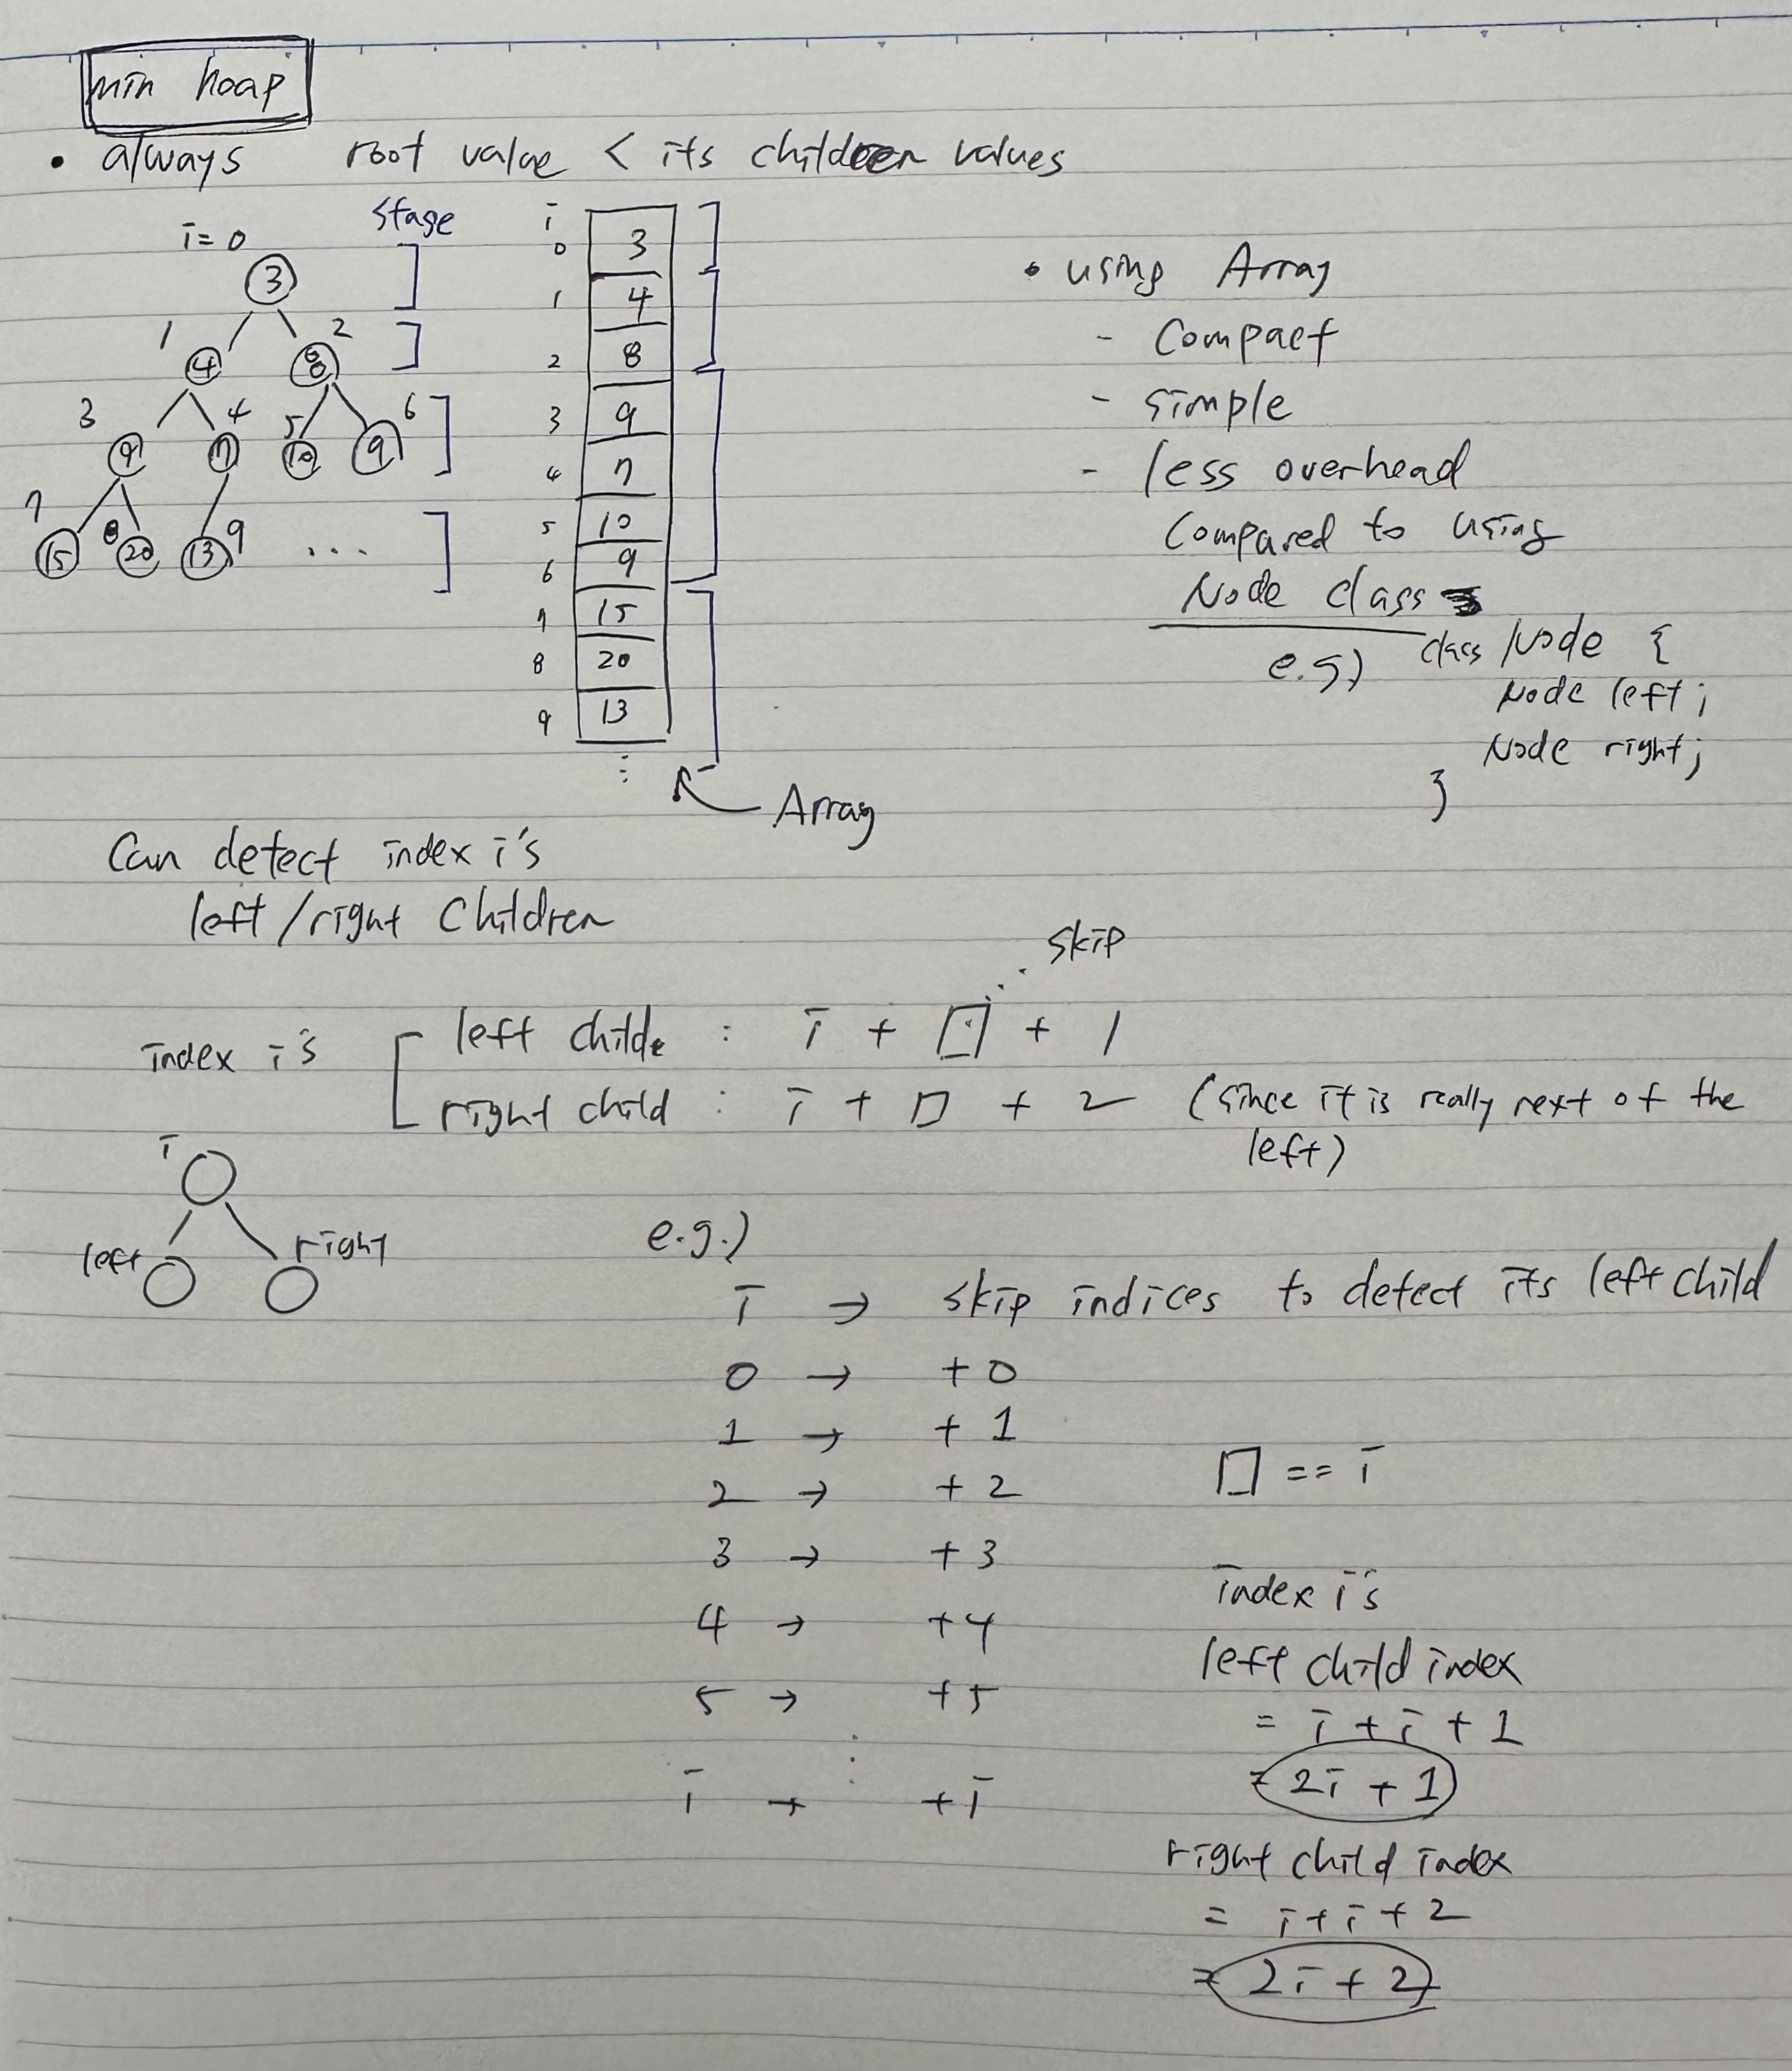 min heap
• always root value < its children values
stage
i = 0
3
1 2
4 8
3 4 5 6
9 7 10 9
7 8 9
15 20 13 ...
i
0 3
1 4
2 8
3 9
4 7
5 10
6 9
7 15
8 20
9 13
⋮
Array
• using Array
- Compact
- simple
- less overhead
Compared to using
Node class
e.g.) class Node {
Node left;
Node right;
}
Can detect index i's
left/right Children
skip
index i's
left child : i + □ + 1
right child : i + □ + 2 (since it is really next of the
left)
i
left right
e.g.)
i → skip indices to detect its left child
0 → +0
1 → +1
2 → +2
3 → +3
4 → +4
5 → +5
⋮
i → +i
□ == i
index i's
left child index
= i + i + 1
= 2i + 1
right child index
= i + i + 2
= 2i + 2